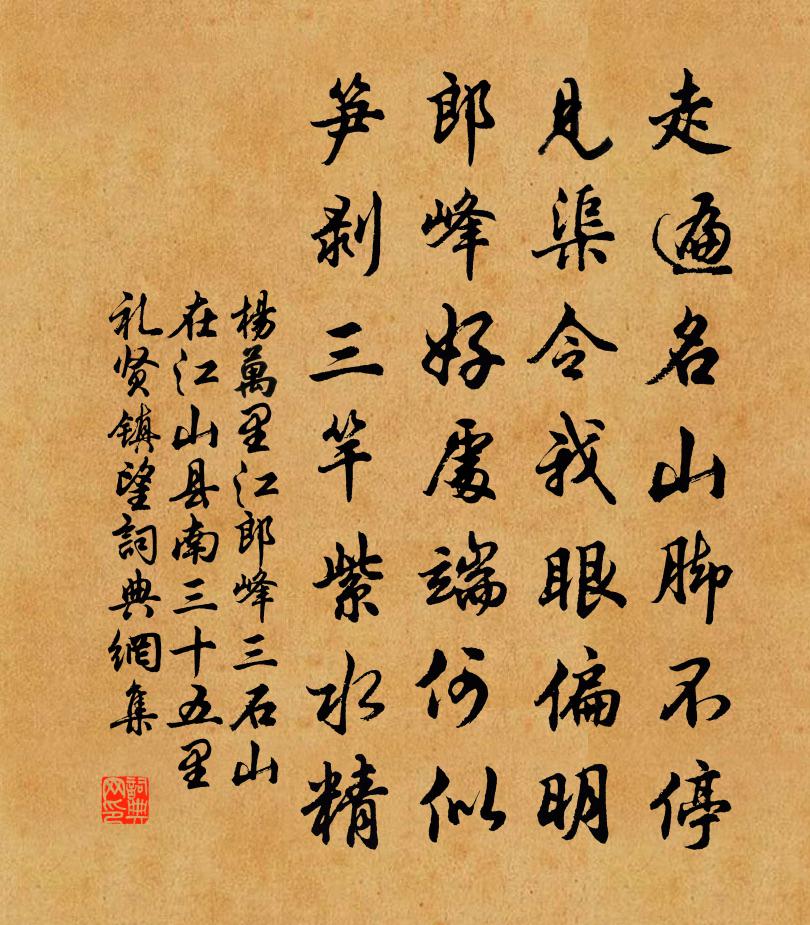 走遍名山脚不停
見渠令我眼偏明
郎峰好處端何似
笋剥三竿紫水精
楊萬里江郎峰三石山
在江山县南三十五里
礼贤镇望詞典網集
詞典
网印